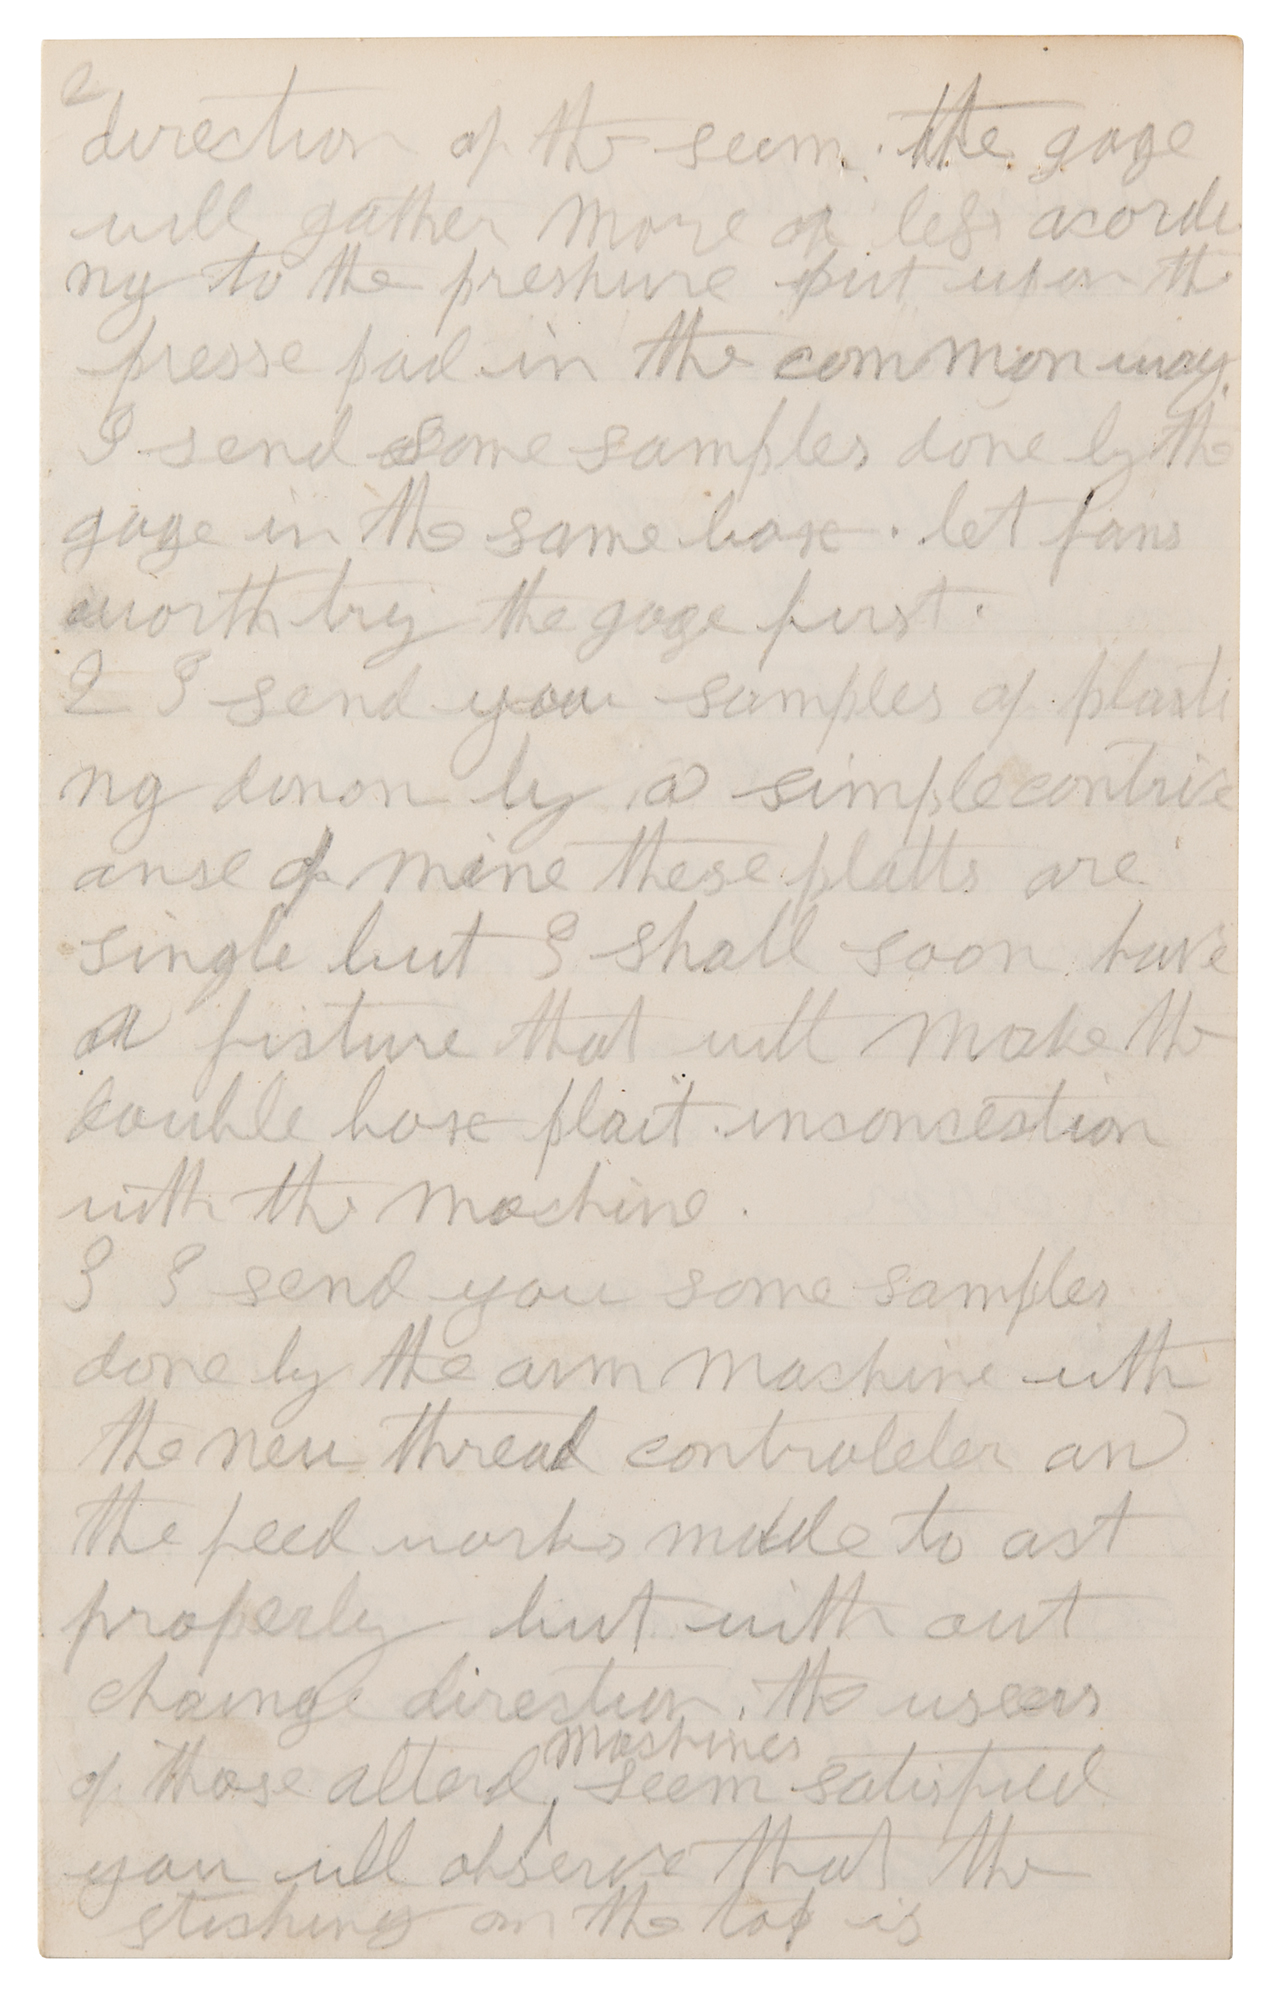 2
direction of the seem. the gage
will gather more or less acordi
ng to the preshure put upon the
presse pad in the common way.
I send some samples done by the
gage in the same box. let fans
worth try the gage first.
2 I send you samples of plaiti
ng donon by a simple contriv
anse of mine these platts are
single but I shall soon have
a fixture that will make the
double box plait. inconcection
with the machine.
3 I send you some samples
done by the arm machine with
the new thread controleler an
the feed works made to act
properly but with out
chainge direction. the useers
machines
of those alterd, seem satisfied
you will observe that the
stiching on the top is